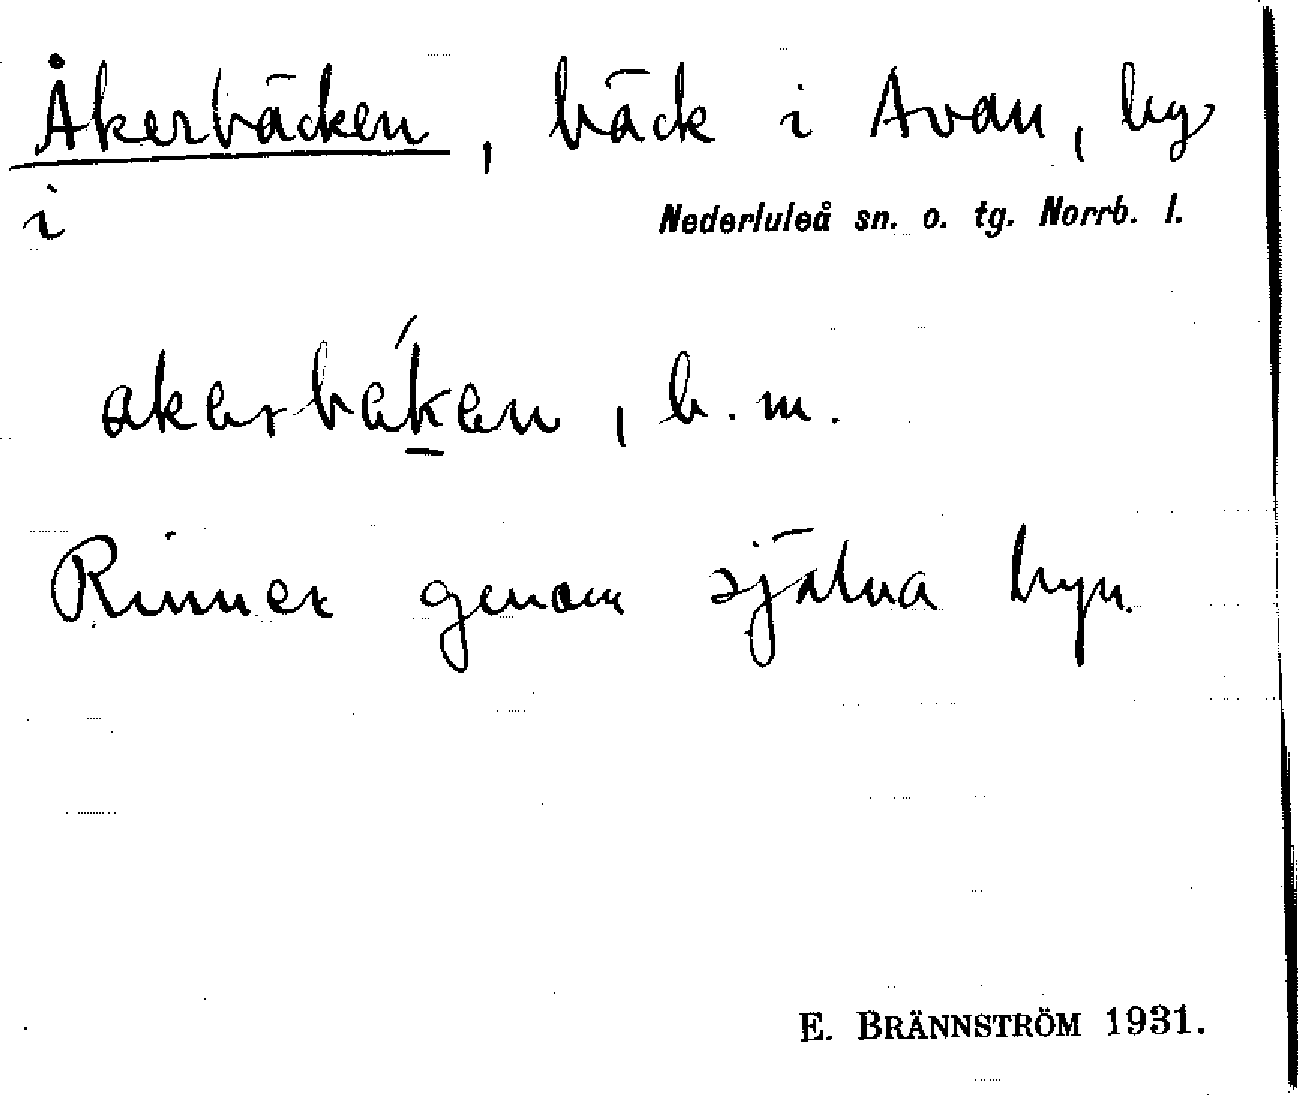 Åkerbäcken, bäck i Avan, by
i Nederluleå sn. o. tg. Norrb. l.
akerbék̲en, b. m.
Rinner genom själva byn.
E. BRÄNNSTRÖM 1931.